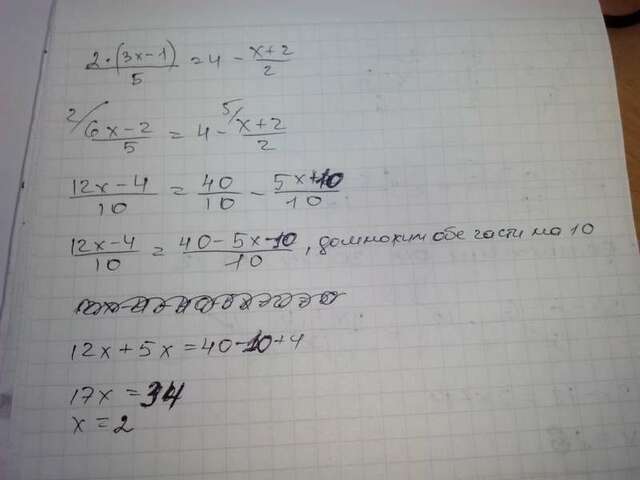 2·(3x-1)/5 = 4 - x+2/2
2/ 6x-2/5 = 4 - 5/ x+2/2
12x-4/10 = 40/10 - 5x+10/10
12x-4/10 = 40-5x-10/10, домножим обе части на 10
12x+5x=40-10+4
17x=34
x=2